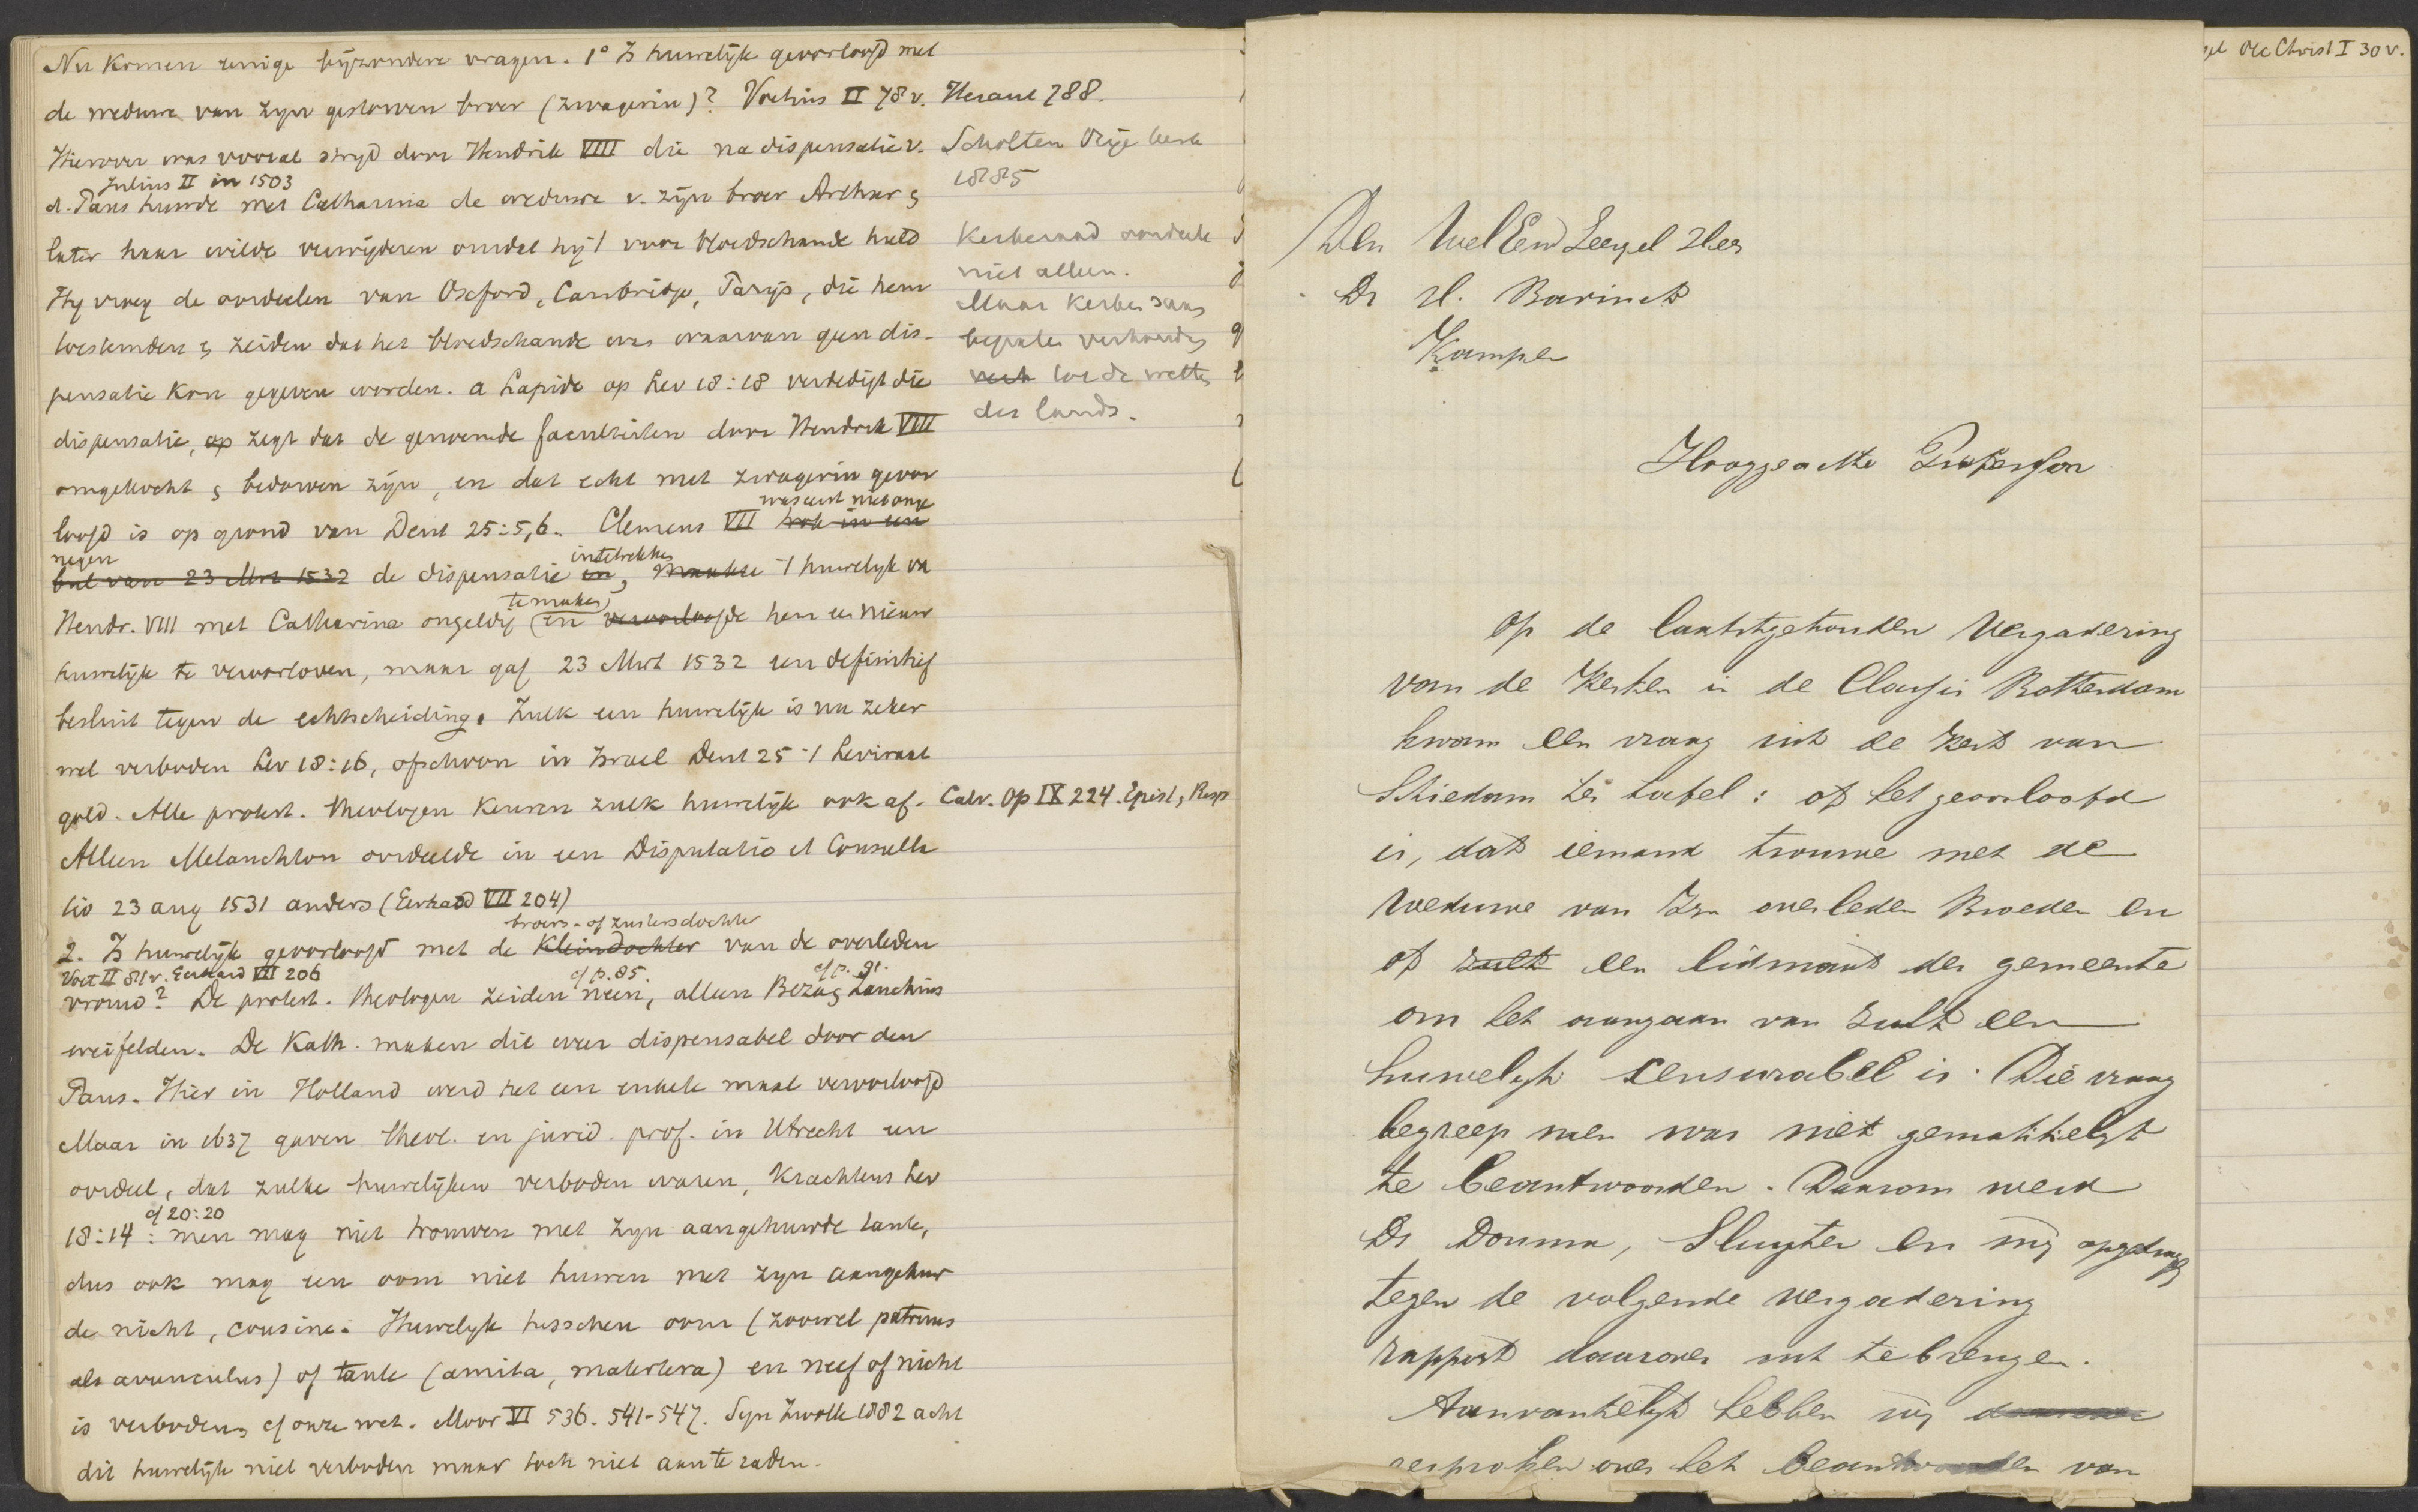 Nu komen eenige bijzondere vragen. 1° Is huwelijk geoorloofd met
de weduwe van zijn gestorven broer (zwagerin)? Voetius II 78 v.
Hierover was vooral strijd door Hendrik VIII die na dispensatie v.
Julius II in 1503
d. Paus huwde met Catharina de weduwe v. zijn broer Arthur &
later haar wilde verwijderen omdat hij 't voor bloedschande hield
Hij vroeg de oordeelen van Oxford, Cambridge, Parijs, die hem
toestemden & zeiden dat het bloedschande was waarvan geen dis-
pensatie kon gegeven worden. a Lapide op Lev 18:18 verdedigt die
dispensatie, op zegt dat de genoemde faculteiten door Hendrik VIII
omgekocht & bedorven zijn, en dat echt met zwagerin geoor
loofd is op grond van Deut 25:5,6. Clemens VII trok in een
was eerst niet onge
negen
bul van 23 Mrt 1532 de dispensatie in, maakte 't huwelijk va
intetrekken
Hendr. VIII met Catharina ongeldig en veroorloofde hem een nieuw
te maken,
huwelijk te veroorloven, maar gaf 23 Mrt 1532 een definitief
besluit tegen de echtscheiding. Zulk een huwelijk is nu zeker
wel verboden Lev 18:16, ofschoon in Israel Deut 25 't Leviraat
gold. Alle protest. theologen keuren zulk huwelijk ook af.
Alleen Melanchton oordeelde in een Disputatio et Consulta
tio 23 aug 1531 anders (Gerhard VII 204)
broers- of zustersdochter
2. Is huwelijk geoorloofd met de kleindochter van de overleden
Voet II 81 v. Gerhard VII 206
cf p. 85.
cf p. 91.
vrouw? De protest. theologen zeiden neen, alleen Beza & Zanchius
weifelden. De Kath. maken dit weer dispensabel door den
Paus. Hier in Holland werd het een enkele maal veroorloofd
Maar in 1637 gaven theol. en jurid. prof. in Utrecht een
oordeel, dat zulke huwelijken verboden waren, krachtens Lev
cf 20:20
18:14: men mag niet trouwen met zijn aangehuwde tante,
dus ook mag een oom niet huwen met zijn aangehuw
de nicht, cousine. Huwelijk tusschen oom (zoowel patruus
als avunculus) of tante (amita, matertera) en neef of nicht
is verboden, cf onze wet. Moor VI 536. 541-547. Syn Zwolle 1882 acht
dit huwelijk niet verboden maar toch niet aan te raden.
Heraut 788.
Scholten Vrije kerk
1885
Kerkeraad oordeele
niet alleen.
Maar kerken saam
bepalen verhouding
tot de wetten
des lands.
Calv. Op IX 224. Epist, & Resp
Den WelEerw Zeergel Heer
Dr H. Bavinck
Kampen
Hooggeachte Professor
Op de laatstgehouden Vergadering
van de Kerken in de Classis Rotterdam
kwam een vraag uit de Kerk van
Schiedam ter tafel: of het geoorloofd
is, dat iemand trouwe met de
Weduwe van Zijn overleden Broeder en
of zulk een lidmaat der gemeente
om het aangaan van zulk een
huwelijk censurabel is. Die vraag
begreep men was niet gemakkelijk
te beantwoorden. Daarom werd
Ds Douma, Sluyter en mij opgedragen
tegen de volgende vergadering
rapport daarover uit te brengen.
Aanvankelijk hebben wij daarover
gesproken over het beantwoorden van
Vle Christ I 30 v.